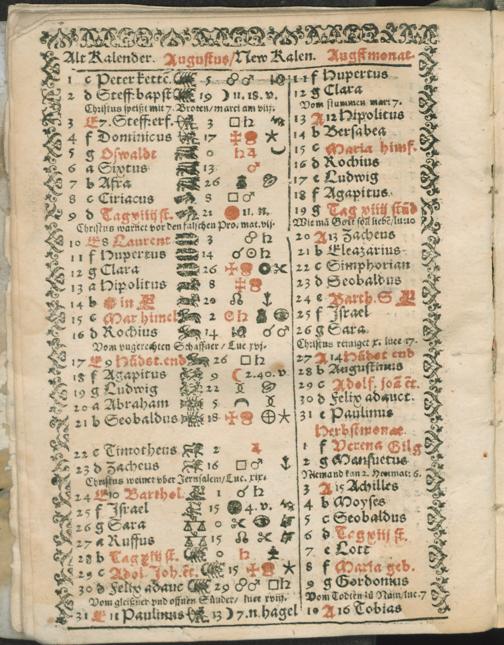 Alt Kalender. Augustus/ New Kalen. Augstmonat.
1 c Peter kette. 5
2 d Steff. bapst 19 ) u. 18. v.
Christus speist mit 7. Broten/ marci am viij.
3 E 7. Steff. erf. 3
4 f Dominicus 17
5 g Oswaldt
6 a Sixtus 13
7 b Afra 26
8 c Ciriacus 8
9 d Tag xiiij st. 21 u. n.
Christus warnet vor den falschen Pro. mat. vij.
10 E 8 Laurent 3
11 f Hupertus 14
12 g Clara 26
13 a Hipolitus 8
14 b 20
15 c Mar himel 2
16 d Rochius 14
Vom ungerechten Schaffner/ Luc xvj.
17 E 9 Hüdst. end 26
18 f Agapitus 9 2. 40. v.
19 g Ludwig 22
20 a Abraham 5
21 b Seobaldus 18
22 c Timotheus 2
23 d Zacheus 16
Christus weinet vber Jerusalem/ Luc. xix.
24 E 10 Barthol. 1
25 f Israel 15 4. v.
26 g Sara 0
27 a Ruffus 15
28 b Tag xiij st. 0
29 c Adol. Joh. et. 15
30 d Felix adauc 29
Vom gleißner vnd offnen Sünder/ luce xviij.
31 E 11 Paulinus 13 ) 7. n. hagel
11 f Hupertus
12 g Clara
Vom stummen marc 7.
13 A 12 Hipolitus
14 b Bersabea
15 c Maria himf.
16 d Rochius
17 e Ludwig
18 f Agapitus
19 g Tag xiiij stüd
20 A 13 Zacheus
21 b Eleazarius
22 c Simphorian
23 d Seobaldus
24 e Barth. S
25 f Israel
26 g Sara
Christus reiniget x. luce 17.
27 A 14 Hüdst end
28 b Augustinus
29 c Adolf. joā et.
30 d Felix adauct.
31 e Paulinus
Herbstmonat.
1 f Verena Gilg
2 g Mansuetus
Niemand kan 2. Herrn mat: 6.
3 A 15 Achilles
4 b Moyses
5 c Seobaldus
6 d Tag xiij st.
7 e Lott
8 f Maria geb.
9 g Gordonius
Vom Todten zů Nain/ luc. 7
10 A 16 Tobias